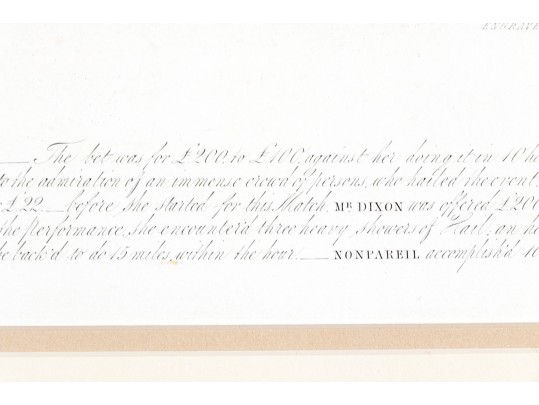 ENGRAVE
The bet was for £200, to £100, against her doing it in 10 ho
to the admiration of an immense crowd of persons, who hailed the event
£22 before she started for this Match, MR DIXON was offered £200
the performance, she encounter'd three heavy showers of Hail, an ho
be back'd to do 15 miles, within the hour. NONPAREIL accomplish'd 10